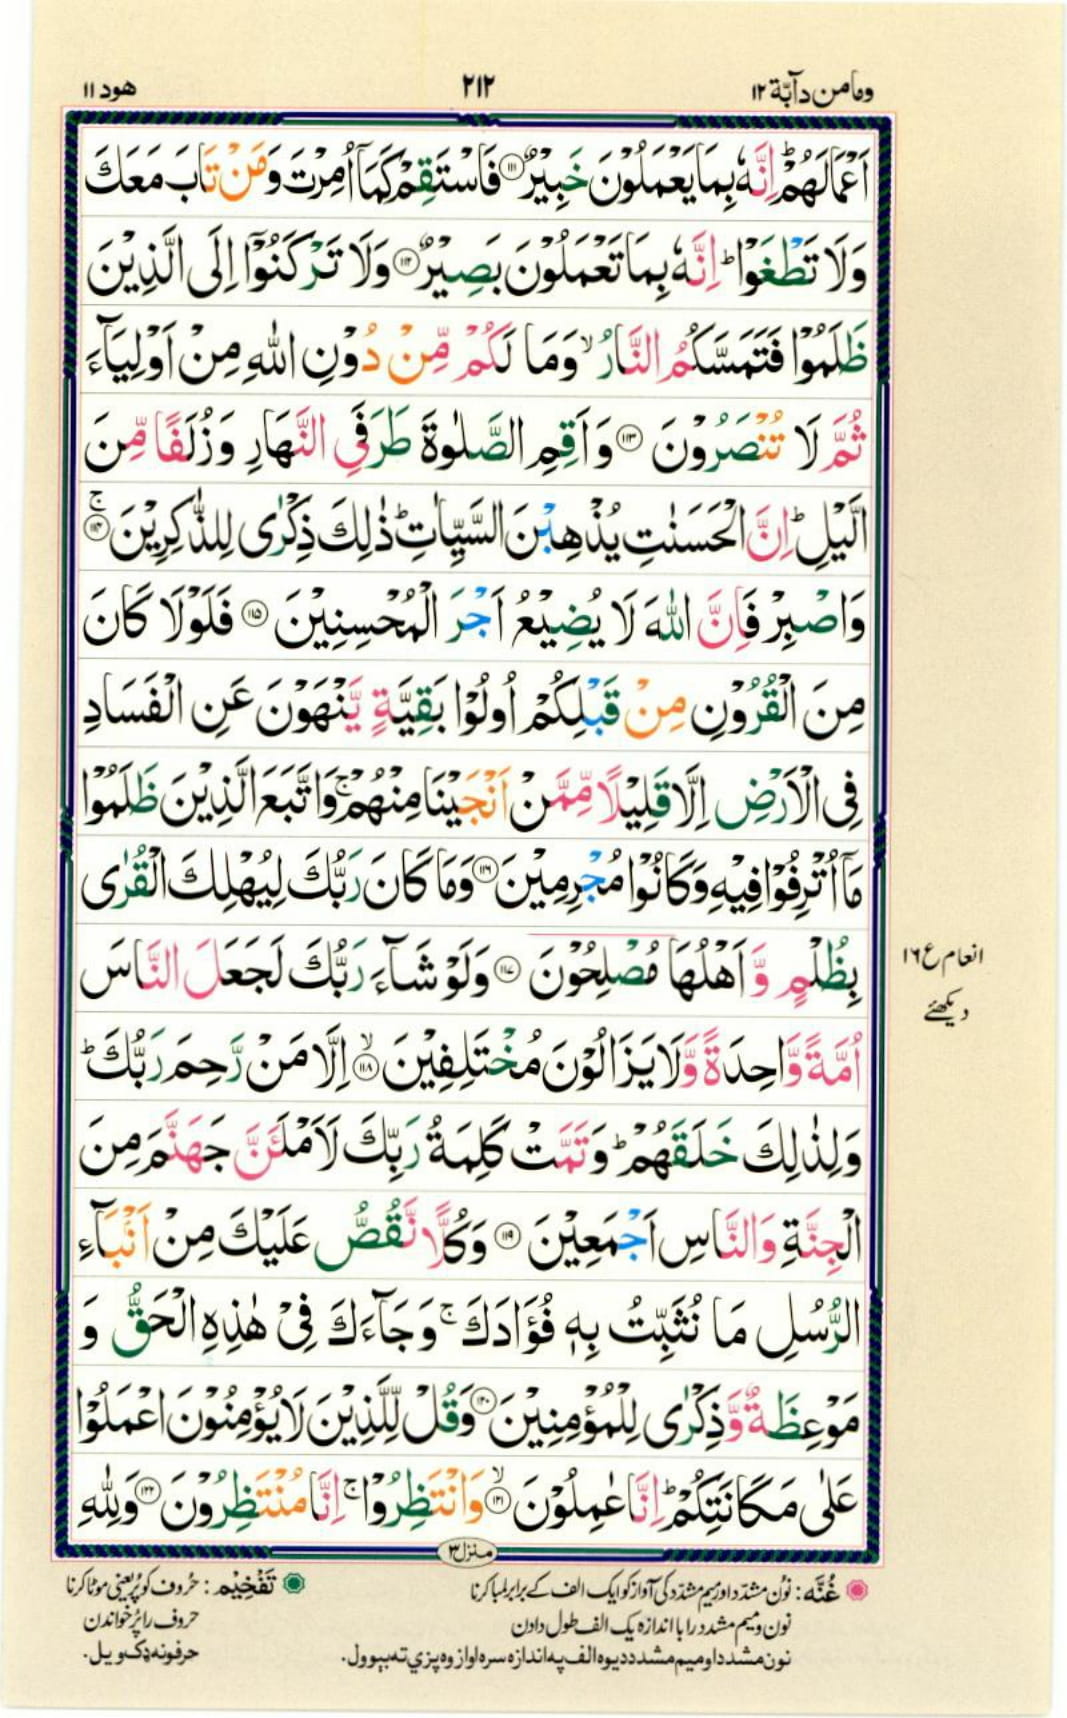 وما من دآبّة ١٢
٢١٢
هود ١١
اَعْمَالَهُمْ ؕ اِنَّهٗ بِمَا يَعْمَلُوْنَ خَبِيْرٌ ۝١١١ فَاسْتَقِمْ كَمَاۤ اُمِرْتَ وَمَنْ تَابَ مَعَكَ
وَلَا تَطْغَوْا ؕ اِنَّهٗ بِمَا تَعْمَلُوْنَ بَصِيْرٌ ۝١١٢ وَلَا تَرْكَنُوْۤا اِلَى الَّذِيْنَ
ظَلَمُوْا فَتَمَسَّكُمُ النَّارُ ۙ وَمَا لَكُمْ مِّنْ دُوْنِ اللّٰهِ مِنْ اَوْلِيَآءَ
ثُمَّ لَا تُنْصَرُوْنَ ۝١١٣ وَاَقِمِ الصَّلٰوةَ طَرَفَيِ النَّهَارِ وَزُلَفًا مِّنَ
الَّيْلِ ؕ اِنَّ الْحَسَنٰتِ يُذْهِبْنَ السَّيِّاٰتِ ؕ ذٰلِكَ ذِكْرٰى لِلذّٰكِرِيْنَ ۝١١٤ ۚ
وَاصْبِرْ فَاِنَّ اللّٰهَ لَا يُضِيْعُ اَجْرَ الْمُحْسِنِيْنَ ۝١١٥ فَلَوْلَا كَانَ
مِنَ الْقُرُوْنِ مِنْ قَبْلِكُمْ اُولُوْا بَقِيَّةٍ يَّنْهَوْنَ عَنِ الْفَسَادِ
فِى الْاَرْضِ اِلَّا قَلِيْلًا مِّمَّنْ اَنْجَيْنَا مِنْهُمْ ۚ وَاتَّبَعَ الَّذِيْنَ ظَلَمُوْا
مَاۤ اُتْرِفُوْا فِيْهِ وَكَانُوْا مُجْرِمِيْنَ ۝١١٦ وَمَا كَانَ رَبُّكَ لِيُهْلِكَ الْقُرٰى
بِظُلْمٍ وَّاَهْلُهَا مُصْلِحُوْنَ ۝١١٧ وَلَوْ شَآءَ رَبُّكَ لَجَعَلَ النَّاسَ
انعام ع ١٦
دیکھئے
اُمَّةً وَّاحِدَةً وَّلَا يَزَالُوْنَ مُخْتَلِفِيْنَ ۝١١٨ ۙ اِلَّا مَنْ رَّحِمَ رَبُّكَ ؕ
وَلِذٰلِكَ خَلَقَهُمْ ؕ وَتَمَّتْ كَلِمَةُ رَبِّكَ لَاَمْلَئَنَّ جَهَنَّمَ مِنَ
الْجِنَّةِ وَالنَّاسِ اَجْمَعِيْنَ ۝١١٩ وَكُلًّا نَّقُصُّ عَلَيْكَ مِنْ اَنْۢبَآءِ
الرُّسُلِ مَا نُثَبِّتُ بِهٖ فُؤَادَكَ ۚ وَجَآءَكَ فِيْ هٰذِهِ الْحَقُّ وَ
مَوْعِظَةٌ وَّذِكْرٰى لِلْمُؤْمِنِيْنَ ۝١٢٠ وَقُلْ لِّلَّذِيْنَ لَا يُؤْمِنُوْنَ اعْمَلُوْا
عَلٰى مَكَانَتِكُمْ ؕ اِنَّا عٰمِلُوْنَ ۝١٢١ ۙ وَانْتَظِرُوْا ۚ اِنَّا مُنْتَظِرُوْنَ ۝١٢٢ وَلِلّٰهِ
منزل ٣
غُنَّه: نون مشدّد اور میم مشدّد کی آواز کو ایک الف کے برابر لمبا کرنا
نون و میم مشدد را با اندازه یک الف طول دادن
نون مشدد او میم مشدد د یوه الف په اندازه سره اواز وه پزې ته بېوول.
تَفْخِيْم: حُروف کو پُر یعنی موٹا کرنا
حروف را پُر خواندن
حرفونه ډک ویل.